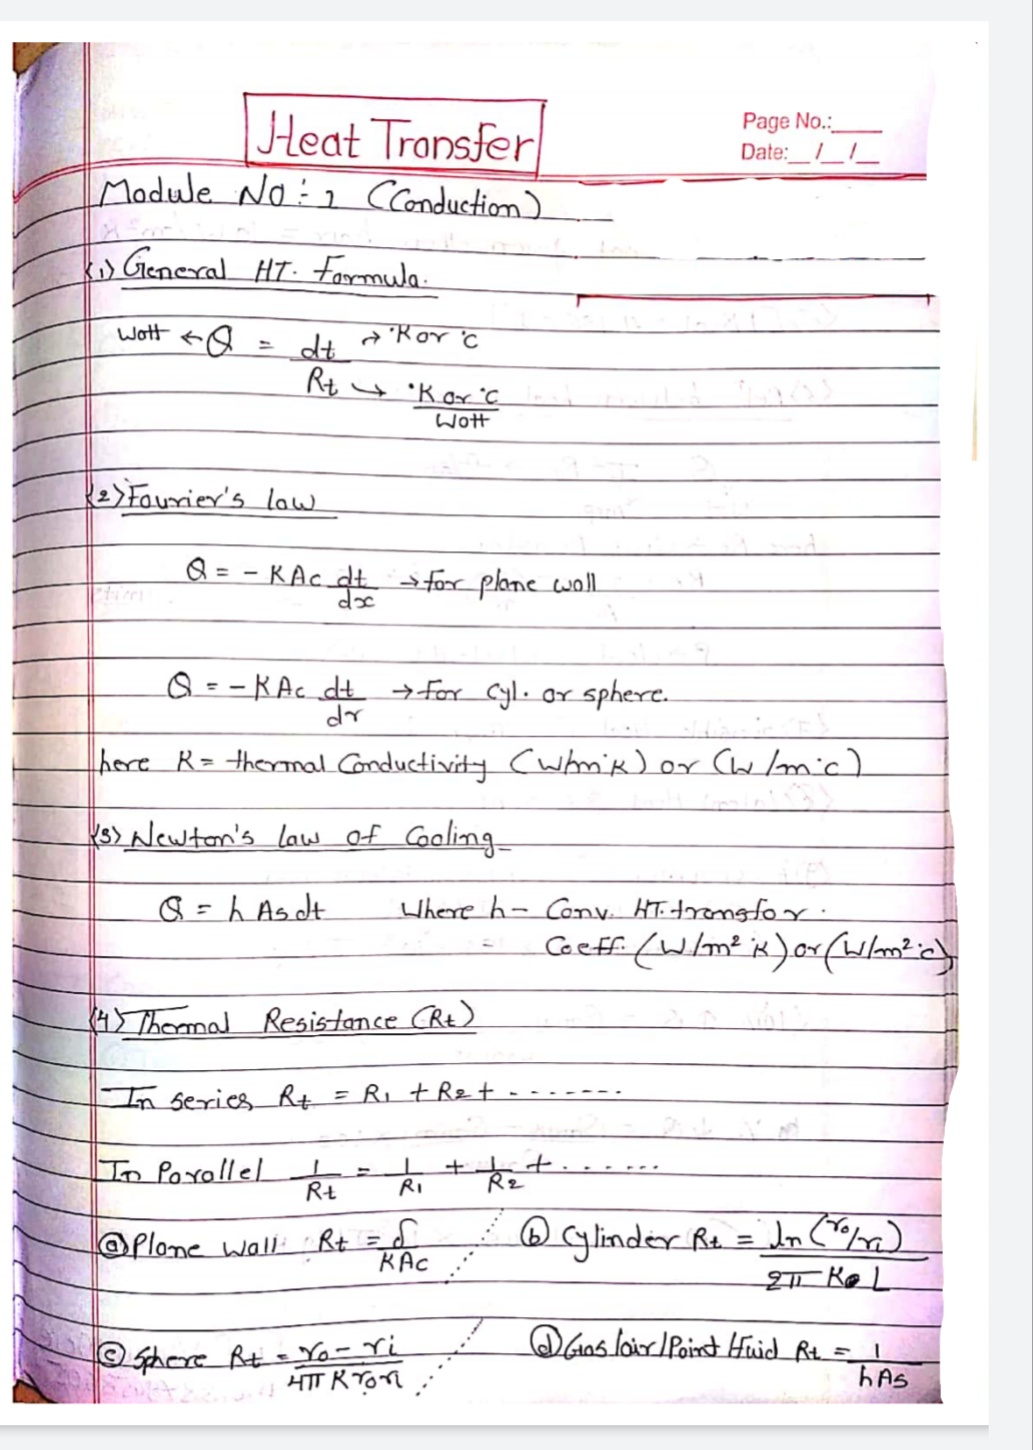 Heat Transfer
Page No.:
Date: / /
Module No ÷ 1 (Conduction)
(1) General HT. Formula.
Watt ← Q = dt/Rt → °K or °C
Rt → °K or °C / Watt
(2) Fourier's law
Q = - KAc dt/dx → for plane wall
Q = - KAc dt/dr → for cyl. or sphere.
here K = thermal Conductivity (W/m°K) or (W/m°C)
(3) Newton's law of Cooling
Q = h As dt Where h - Conv. HT. transfor.
= Coeff. (W/m² °K) or (W/m² °C)
(4) Thermal Resistance (Rt)
In series Rt = R1 + R2 + .......
In Parallel 1/Rt = 1/R1 + 1/R2 + ......
(a) Plane wall Rt = δ/KAc (b) Cylinder Rt = ln(ro/ri)/2π K L
(c) Sphere Rt = ro - ri/4π K ro ri (d) Gas/air/Point fluid Rt = 1/hAs